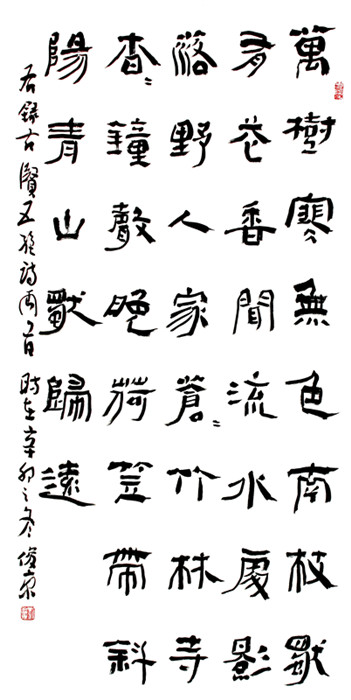 萬樹寒無色南枝獨
有花香聞流水處影
落野人家蒼〻竹林寺
杳〻鐘聲晚荷笠帶斜
陽青山獨歸遠
右錄古賢五絕詩兩首 時在辛卯之冬 俊